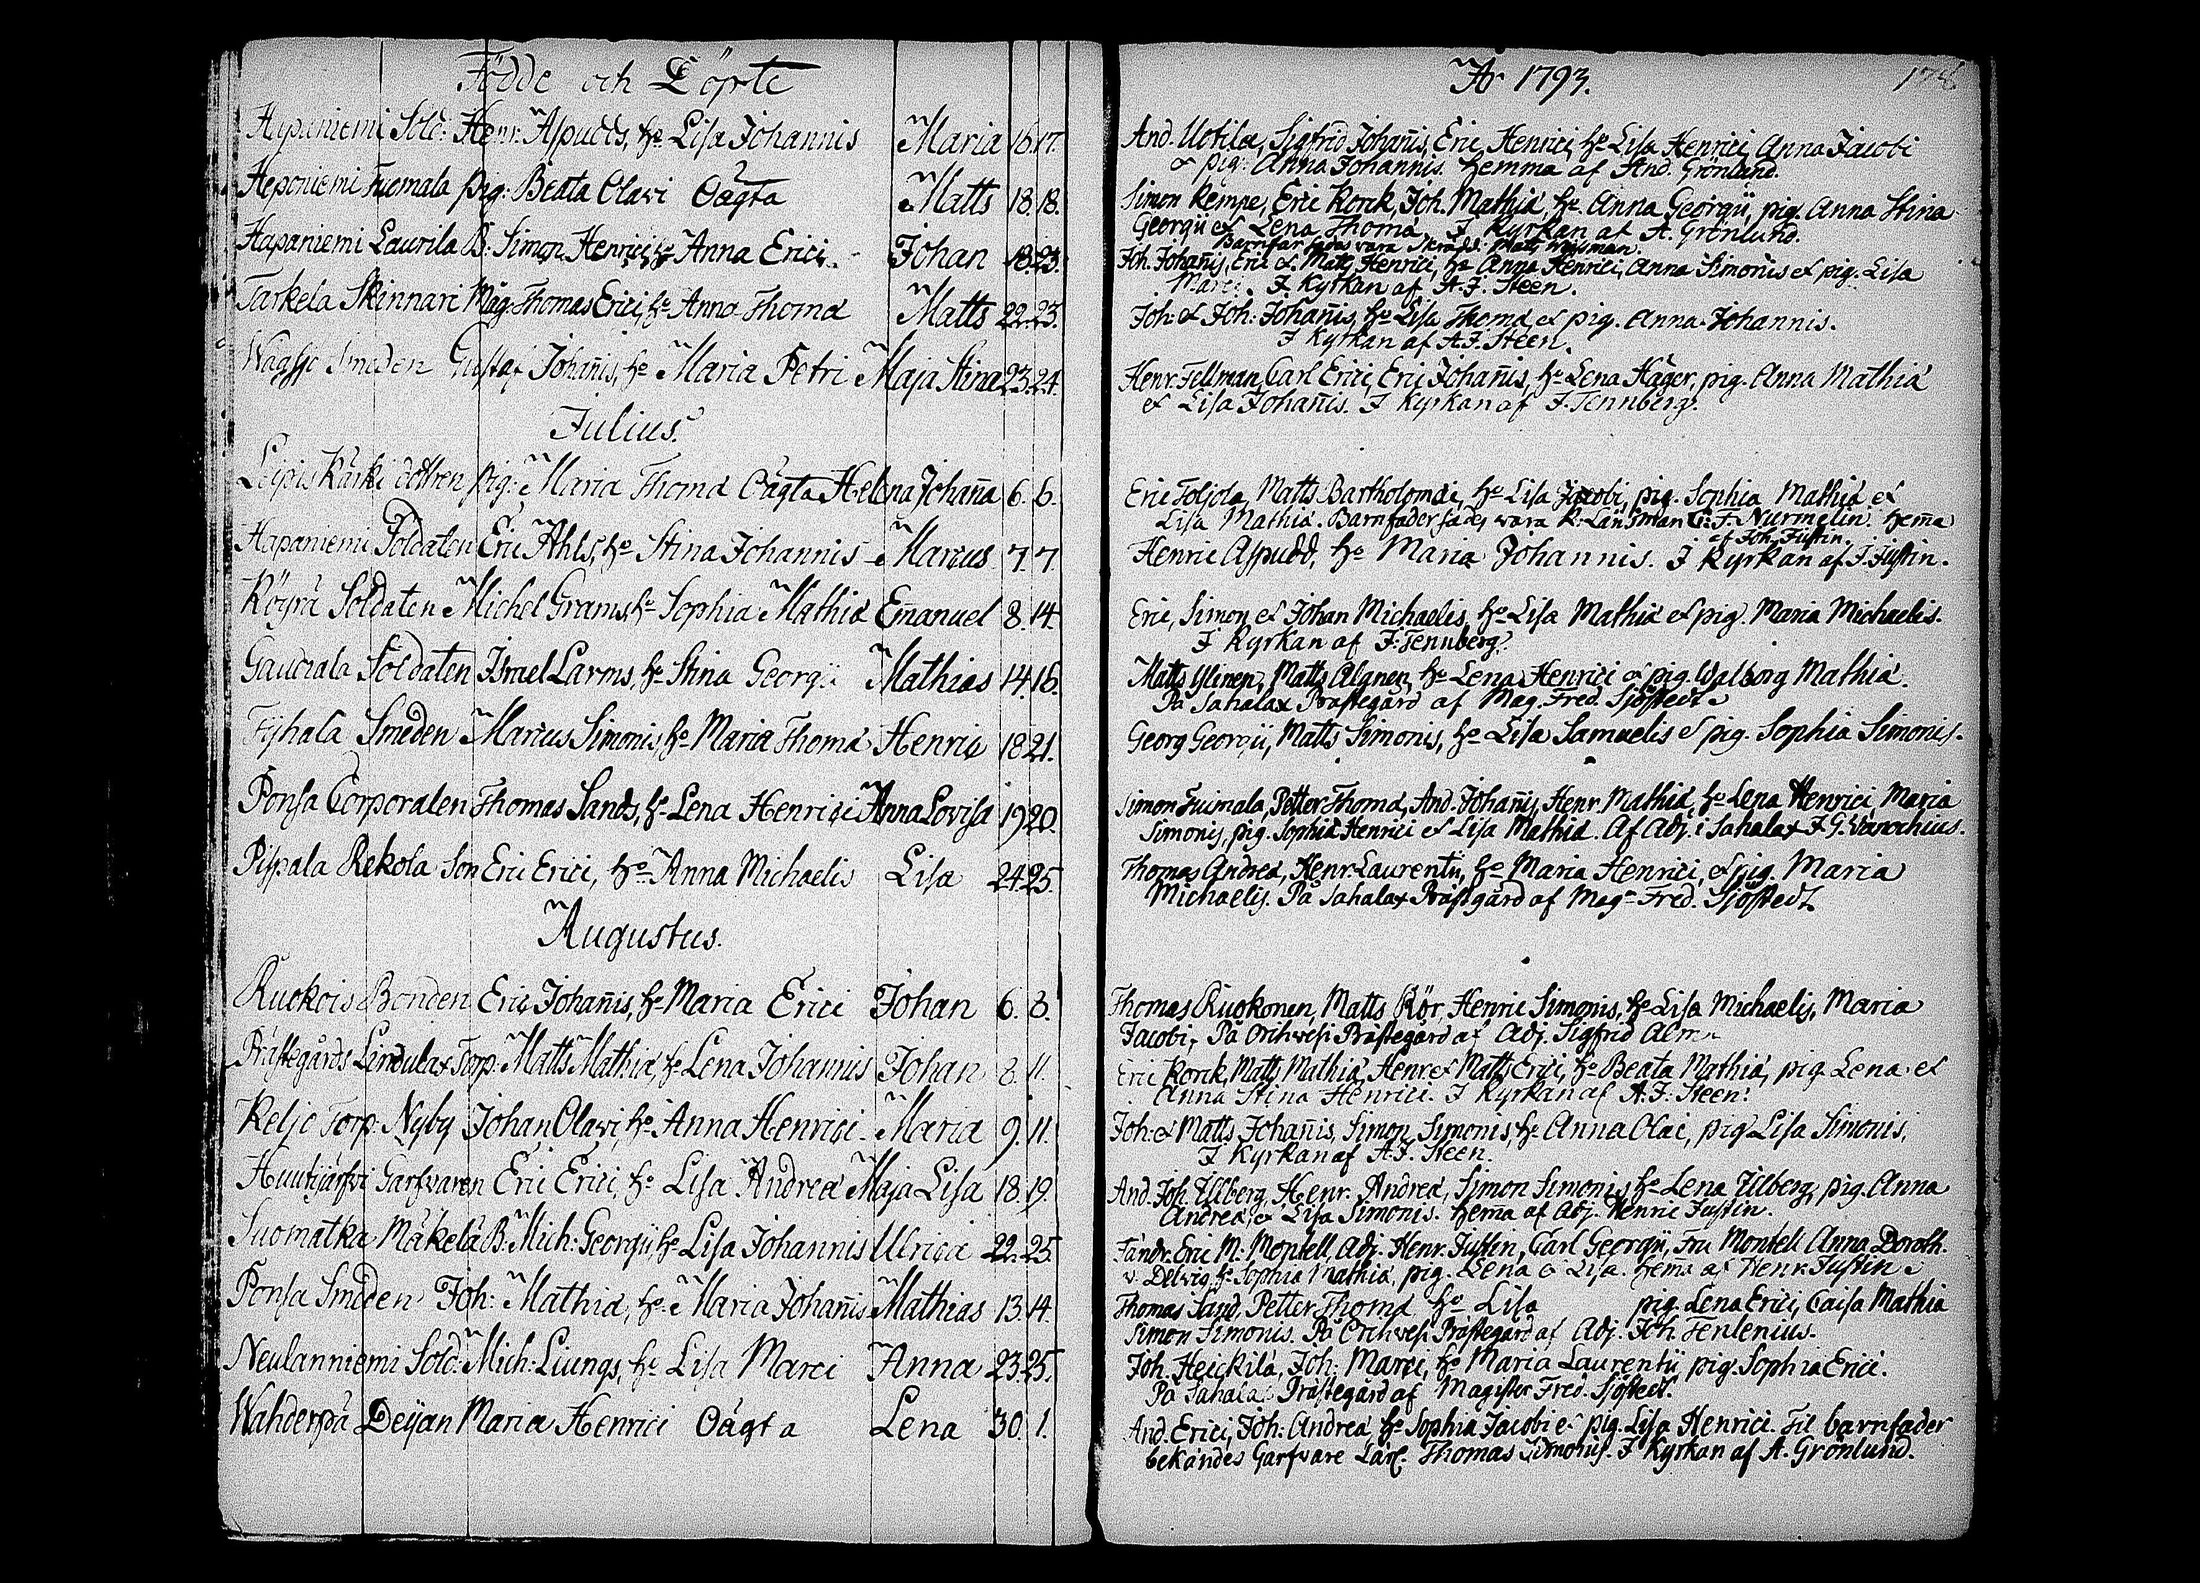 Födde och Döpte
Hapaniemi Sold: Henr. Aspudds, hu Lisa Johannis Maria 16. 17.
Heponiemi Tuomala pig: Beata Olavi Oägta Matts 18. 18.
Hapaniemi Laurila B: Simon Henrici, hu Anna Erici Johan 18. 23.
Tarkela Skinnari Måg: Thomas Erici, hu Anna Thomæ Matts 22. 23.
Smeden Gustaf Johan̄is, hu Maria Petri Maja Stina 23. 24.
Julius.
Leipis Kårki dottren pig: Maria Thomæ Oägta Helena Johan̄a 6. 6.
Hapaniemi Soldaten Eric Ahls, hu Stina Johannis Marcus 7. 7.
Köyrä Soldaten Michel Grams, hu Sophia Mathiæ Emanuel 8. 14.
Soldaten Israel Larms, hu Stina Georgii Mathias 14. 16.
Tyhala Smeden Marcus Simonis, hu Maria Thomæ Henric 18. 21.
Ponsa Corporalen Thomas Sands, hu Lena Henrici Anna Lovisa 19. 20.
Pispala Rekola Son Eric Erici, hu Anna Michaelis Lisa 24. 25.
Augustus.
Kuokois Bonden Eric Johan̄is, hu Maria Erici Johan 6. 8.
Prästegårds Lendulax Torp: Matts Mathiæ, hu Lena Johannis Johan 8. 11.
Keljo Torp: Nyby Johan Olavi, hu Anna Henrici Maria 9. 11.
Huutijärfvi Garfvaren Eric Erici, hu Lisa Andreæ Maja Lisa 18. 19.
Suomatka Mäkelä B. Mich: Georgii, hu Lisa Johannis Ulrica 22. 25.
Ponsa Smeden Joh: Mathiæ, hu Maria Johan̄is Mathias 13. 14.
Neulanniemi Sold: Mich: Liungs, hu Lisa Marci Anna 23. 25.
Wahderpä Deijan Maria Henrici Oägta Lena 30. 1.
År 1793.
And. Uotila, Sigfrid Johan̄is, Eric Henrici, hu Lisa Henrici, Anna Jacobi
& pig: Anna Johannis. hemma af And. Grönlund.
Simon Kempe, Eric Korck, Joh. Mathiæ, hu Anna Georgii, pig. Anna Stina
Georgii & Lena Thomæ. I Kyrkan af A. Grönlund.
Barnfar sades vara Skrädd: Matts
Joh. Johan̄is, Eric & Matts Henrici, hu Anna Henrici, Anna Simonis & pig. Lisa
Marci. I Kyrkan af A.F. Steen.
Joh: & Joh: Johan̄is, hu Lisa Thomæ & pig. Anna Johannis.
I Kyrkan af A.F. Steen.
Henr. Fellman, Carl Erici, Eric Johan̄is, hu Lena Häger, pig. Anna Mathiæ
& Lisa Johan̄is. I Kyrkan af J. Tennberg.
Eric Toljola, Matts Bartholomæi, hu Lisa Jacobi, pig. Sophia Mathiæ &
Lisa Mathiæ. Barnfader sades wara K: Länsman G: F. Nurmelin. hem̄a
af Joh. Justin.
Henric Aspudd, hu Maria Johannis. I Kyrkan af J. Justin.
Eric, Simon & Johan Michaelis, hu Lisa Mathiæ & pig. Maria Michaelis.
I Kyrkan af J. Tennberg.
Matts Ylinen, Matts Alanen, hu Lena Henrici & pig. Walborg Mathiæ.
På Sahalax Prästegård af Mag. Fred. Sjöstedt
Georg Georgii, Matts Simonis, hu Lisa Samuelis & pig. Sophia Simonis.
Simon Tuimala, Petter Thomæ, And. Johan̄is, Henr. Mathiæ, hu Lena Henrici, Maria
Simonis, pig. Sophia Henrici & Lisa Mathiæ. Af Adj. i Sahalax F.G. Wanochius.
Thomas Andreæ, Henr. Laurentii, hu Maria Henrici, & pig. Maria
Michaelis. På Sahalax Prästgård af Mag. Fred. Sjöstedt
Thomas Kuokonen, Matts Kör, Henric Simonis, hu Lisa Michaelis, Maria
Jacobi, På Orihvesi Prästegård af Adj. Sigfrid
Eric Korck, Matts Mathiæ, Henr. & Matts Erici, hu Beata Mathiæ, pig. Lena &
Anna Stina Henrici. I Kyrkan af A.F. Steen.
Joh: & Matts Johan̄is, Simon Simonis, hu Anna Olai, pig Lisa Simonis,
I Kyrkan af A.F. Steen.
And. Joh. Ulberg, Henr. Andreæ, Simon Simonis, hu Lena Ulberg, pig. Anna
Andreæ, & Lisa Simonis. hem̄a af Adj. Henric Justin.
Fändr. Eric M: Montell, Adj. Henr. Justin, Carl Georgii, Fru Montell Anna Doroth.
v. Delvig, hu Sophia Mathiæ, pig. Lena & Lisa. hema af Henr. Justin
Thomas Sand, Petter Thomæ hu Lisa pig. Lena Erici, Caisa Mathiæ
Simon Simonis. På Orihvesi Prästegård af Adj. Joh. Tenlenius.
Joh. Heickilä, Joh: Marci, hu Maria Laurentii, pig. Sophia Erici.
På Sahalax Prästegård af Magister Fred. Sjöstedt.
And. Erici, Joh: Andreæ, hu Sophia Jacobi & pig. Lisa Henrici. Til barnfader
bekändes Garfvare Lärl. Thomas Simonis. I Kyrkan af A. Grönlund.